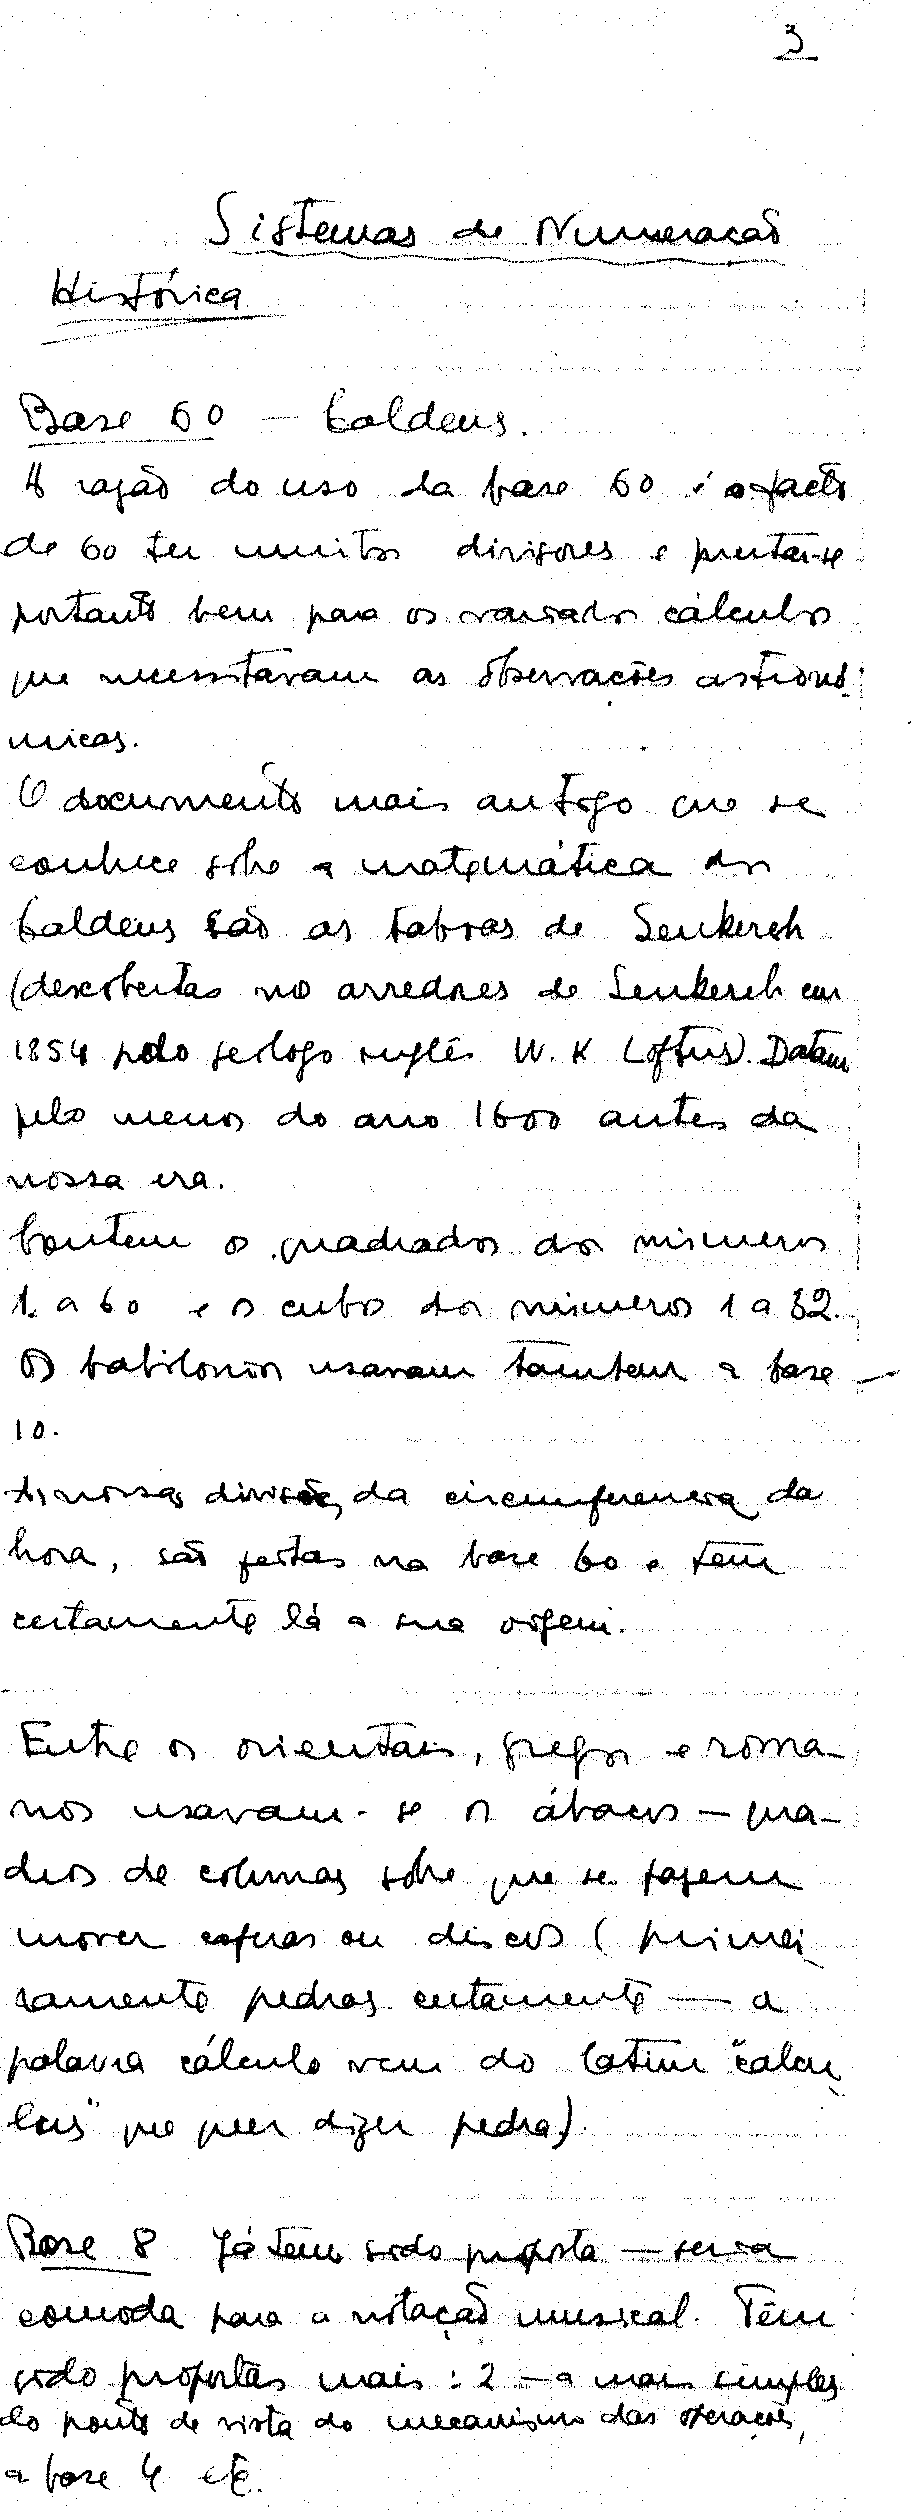 3
Sistemas de Numeração
Histórica
Base 60 — Caldeus.
A razão do uso da base 60 é o facto
de 60 ter muitos divisores e prestar-se
portanto bem para os variados cálculos
que necessitavam as observações astronó-
micas.
O documento mais antigo que se
conhece sobre a matemática dos
Caldeus são as tabuas de Senkereh
(descobertas nos arredores de Senkereh em
1854 pelo geologo inglês W. K Loftus). Datam
pelo menos do ano 1600 antes da
nossa era.
Contem os quadrados dos números
1 a 60 e os cubos dos números 1 a 32.
Os babilonios usavam tambem a base
10.
As nossas divisões da circumferencia, da
hora, são feitas na base 60 e têm
certamente lá a sua origem.
Entre os orientais, gregos e roma-
nos usavam-se os ábacos — qua-
dros de colunas sobre que se fazem
mover esferas ou discos (primei
ramente pedras certamente — a
palavra cálculo vem do latim "calcu
lus" que quer dizer pedra).
Base 8 Já tem sido proposta — seria
comoda para a notação musical. Têm
sido propostas mais: 2 — a mais simples
do ponto de vista do mecanismo das operações,
a base 4 etc.